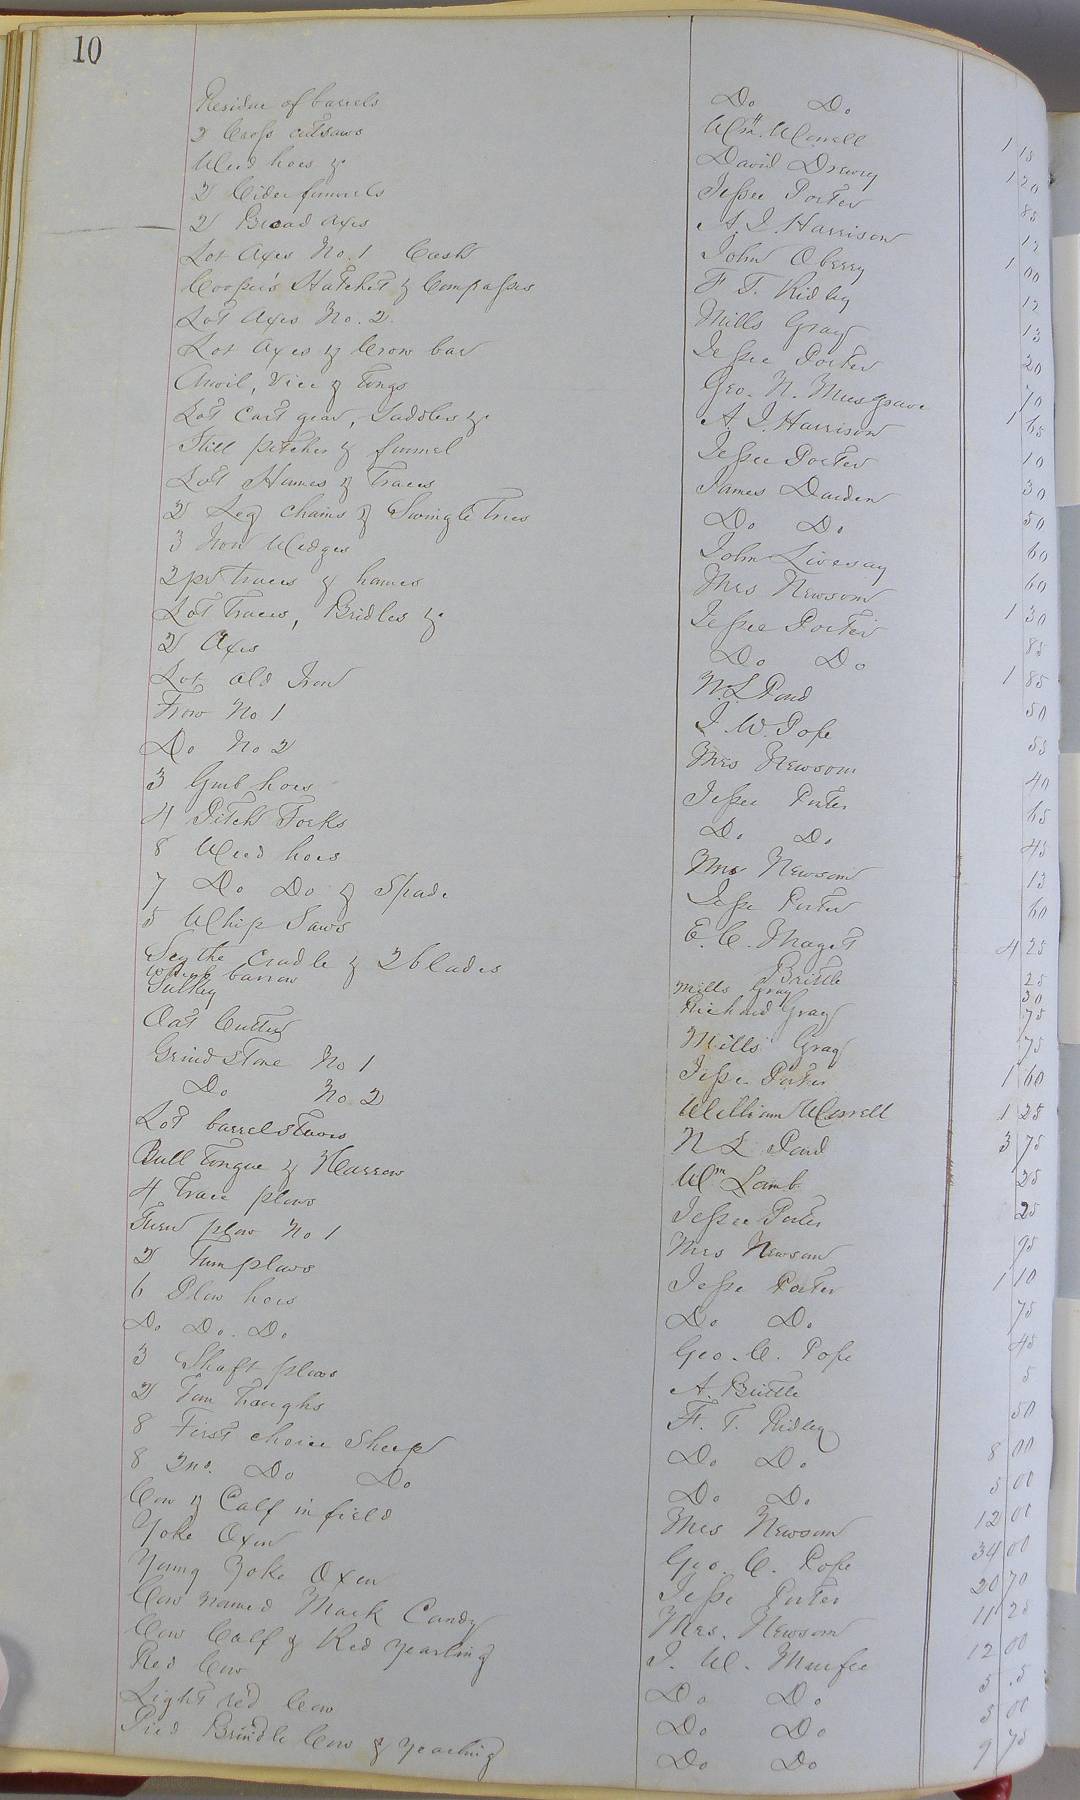 10
Residue of barrels Do Do
2 Cross cut saws Wm. Worrell 1 15
Weed hoes & David Drewry 1 20
2 Cider funnels Jessee Porter 85
2 Broad axes A. J. Harrison 12
Lot Axes No. 1 Cash John Oberry 1 00
Cooper's Hatchet & Compasses F. T. Ridley 12
Lot Axes No. 2. Mills Gray 13
Lot Axes & Crow bar Jessee Porter 20
Anvil, Vice & tongs Geo. N. Musgrave 70
Lot Cart gear, Saddles &c A. J. Harrison 1 65
Still pitcher & funnel Jessee Porter 10
Lot Hames & Traces James Darden 30
2 Leg chains & Swingle Trees Do Do 50
3 Iron Wedges John Livesay 60
2 pr traces & hames Mrs Newsom 60
Lot Traces, Bridles &c Jessee Porter 1 30
2 Axes Do Do 85
Lot old Iron N. L. Pond 1 85
Frow No 1 J. W. Pope 50
Do No 2 Mrs Newsom 55
3 Grub hoes Jessee Porter 40
4 Pitch Forks Do. Do. 65
8 Weed hoes Mrs Newsom 45
7 Do Do & Spade Jesse Porter 13
5 Whip Saws E. C. Maget 60
Scythe cradle & 2 blades Brittle 4 25
wheel barrow Mills Gray 25
Sulkey Richard Gray 30
Oat Cutter Mills Gray 75
Grind stone No 1 Jesse Porter 75
Do No. 2 William Worrell 1 60
Lot barrel staves N L Pond 1 25
Bull tongue & Harrow Wm Lamb 3 75
4 Trace plows Jessee Porter 25
Turn plow No 1 Mrs Newsom 25
2 Turn plows Jesse Porter 95
6 Plow hoes Do. Do. 1 10
Do Do. Do. Geo. C. Pope 75
3 Shaft plows A. Brittle 45
2 Tan Troughs F. T. Ridley 5
8 First choice Sheep Do. Do. 50
8 2nd. Do Do Do Do. 8 00
Cow & Calf in field Mrs Newsom 5 00
Yoke Oxen Geo. C. Pope 12 00
Young Yoke Oxen Jesse Porter 34 00
Cow named Mark Candy Mrs. Newsom 20 70
Cow Calf & Red Yearling J. W. Murfee 11 25
Red Cow Do Do. 12 00
Light red Cow Do Do. 5 .5
Pied Brindle Cow & Yearling Do Do 5 00
9 75